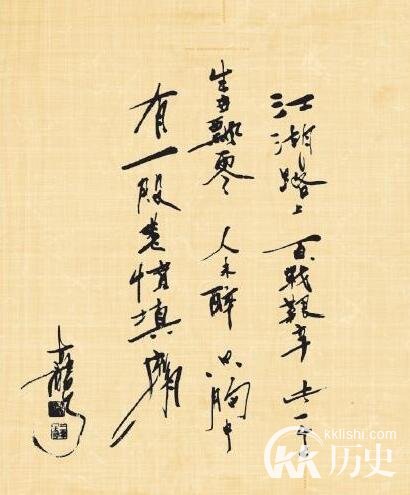 江湖路上 百戰艱辛 一
生 飄零 人未醉 胸中
有一段悲憤填膺
古龍
kklishi.com
KK历史